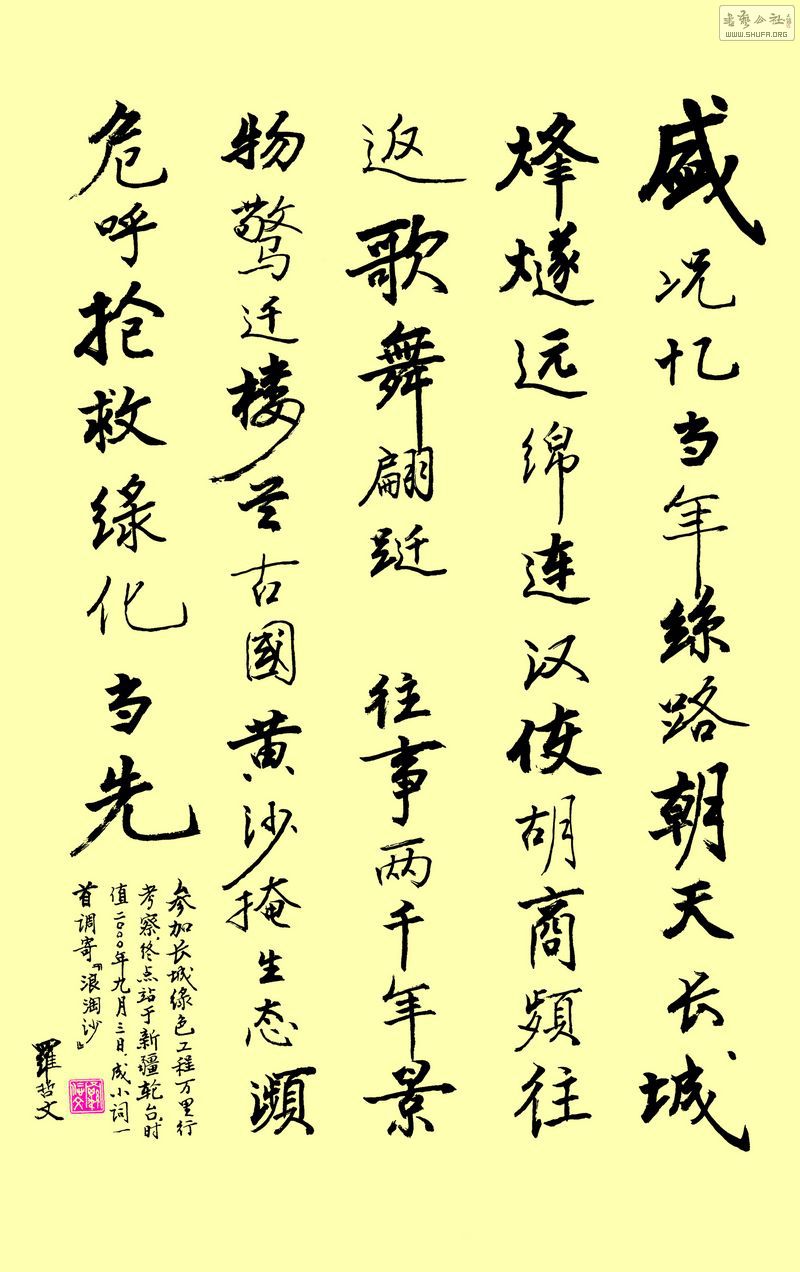 盛况忆当年絲路朝天长城
烽燧远绵连汉使胡商频往
返歌舞翩跹 往事两千年景
物驚迁楼兰古國黄沙掩生态濒
危呼抢救绿化当先
参加长城绿色工程万里行
考察,终点站于新疆轮台,时
值二〇〇〇年九月三日,成小词一
首调寄『浪淘沙』
羅哲文
WWW.SHUFA.ORG